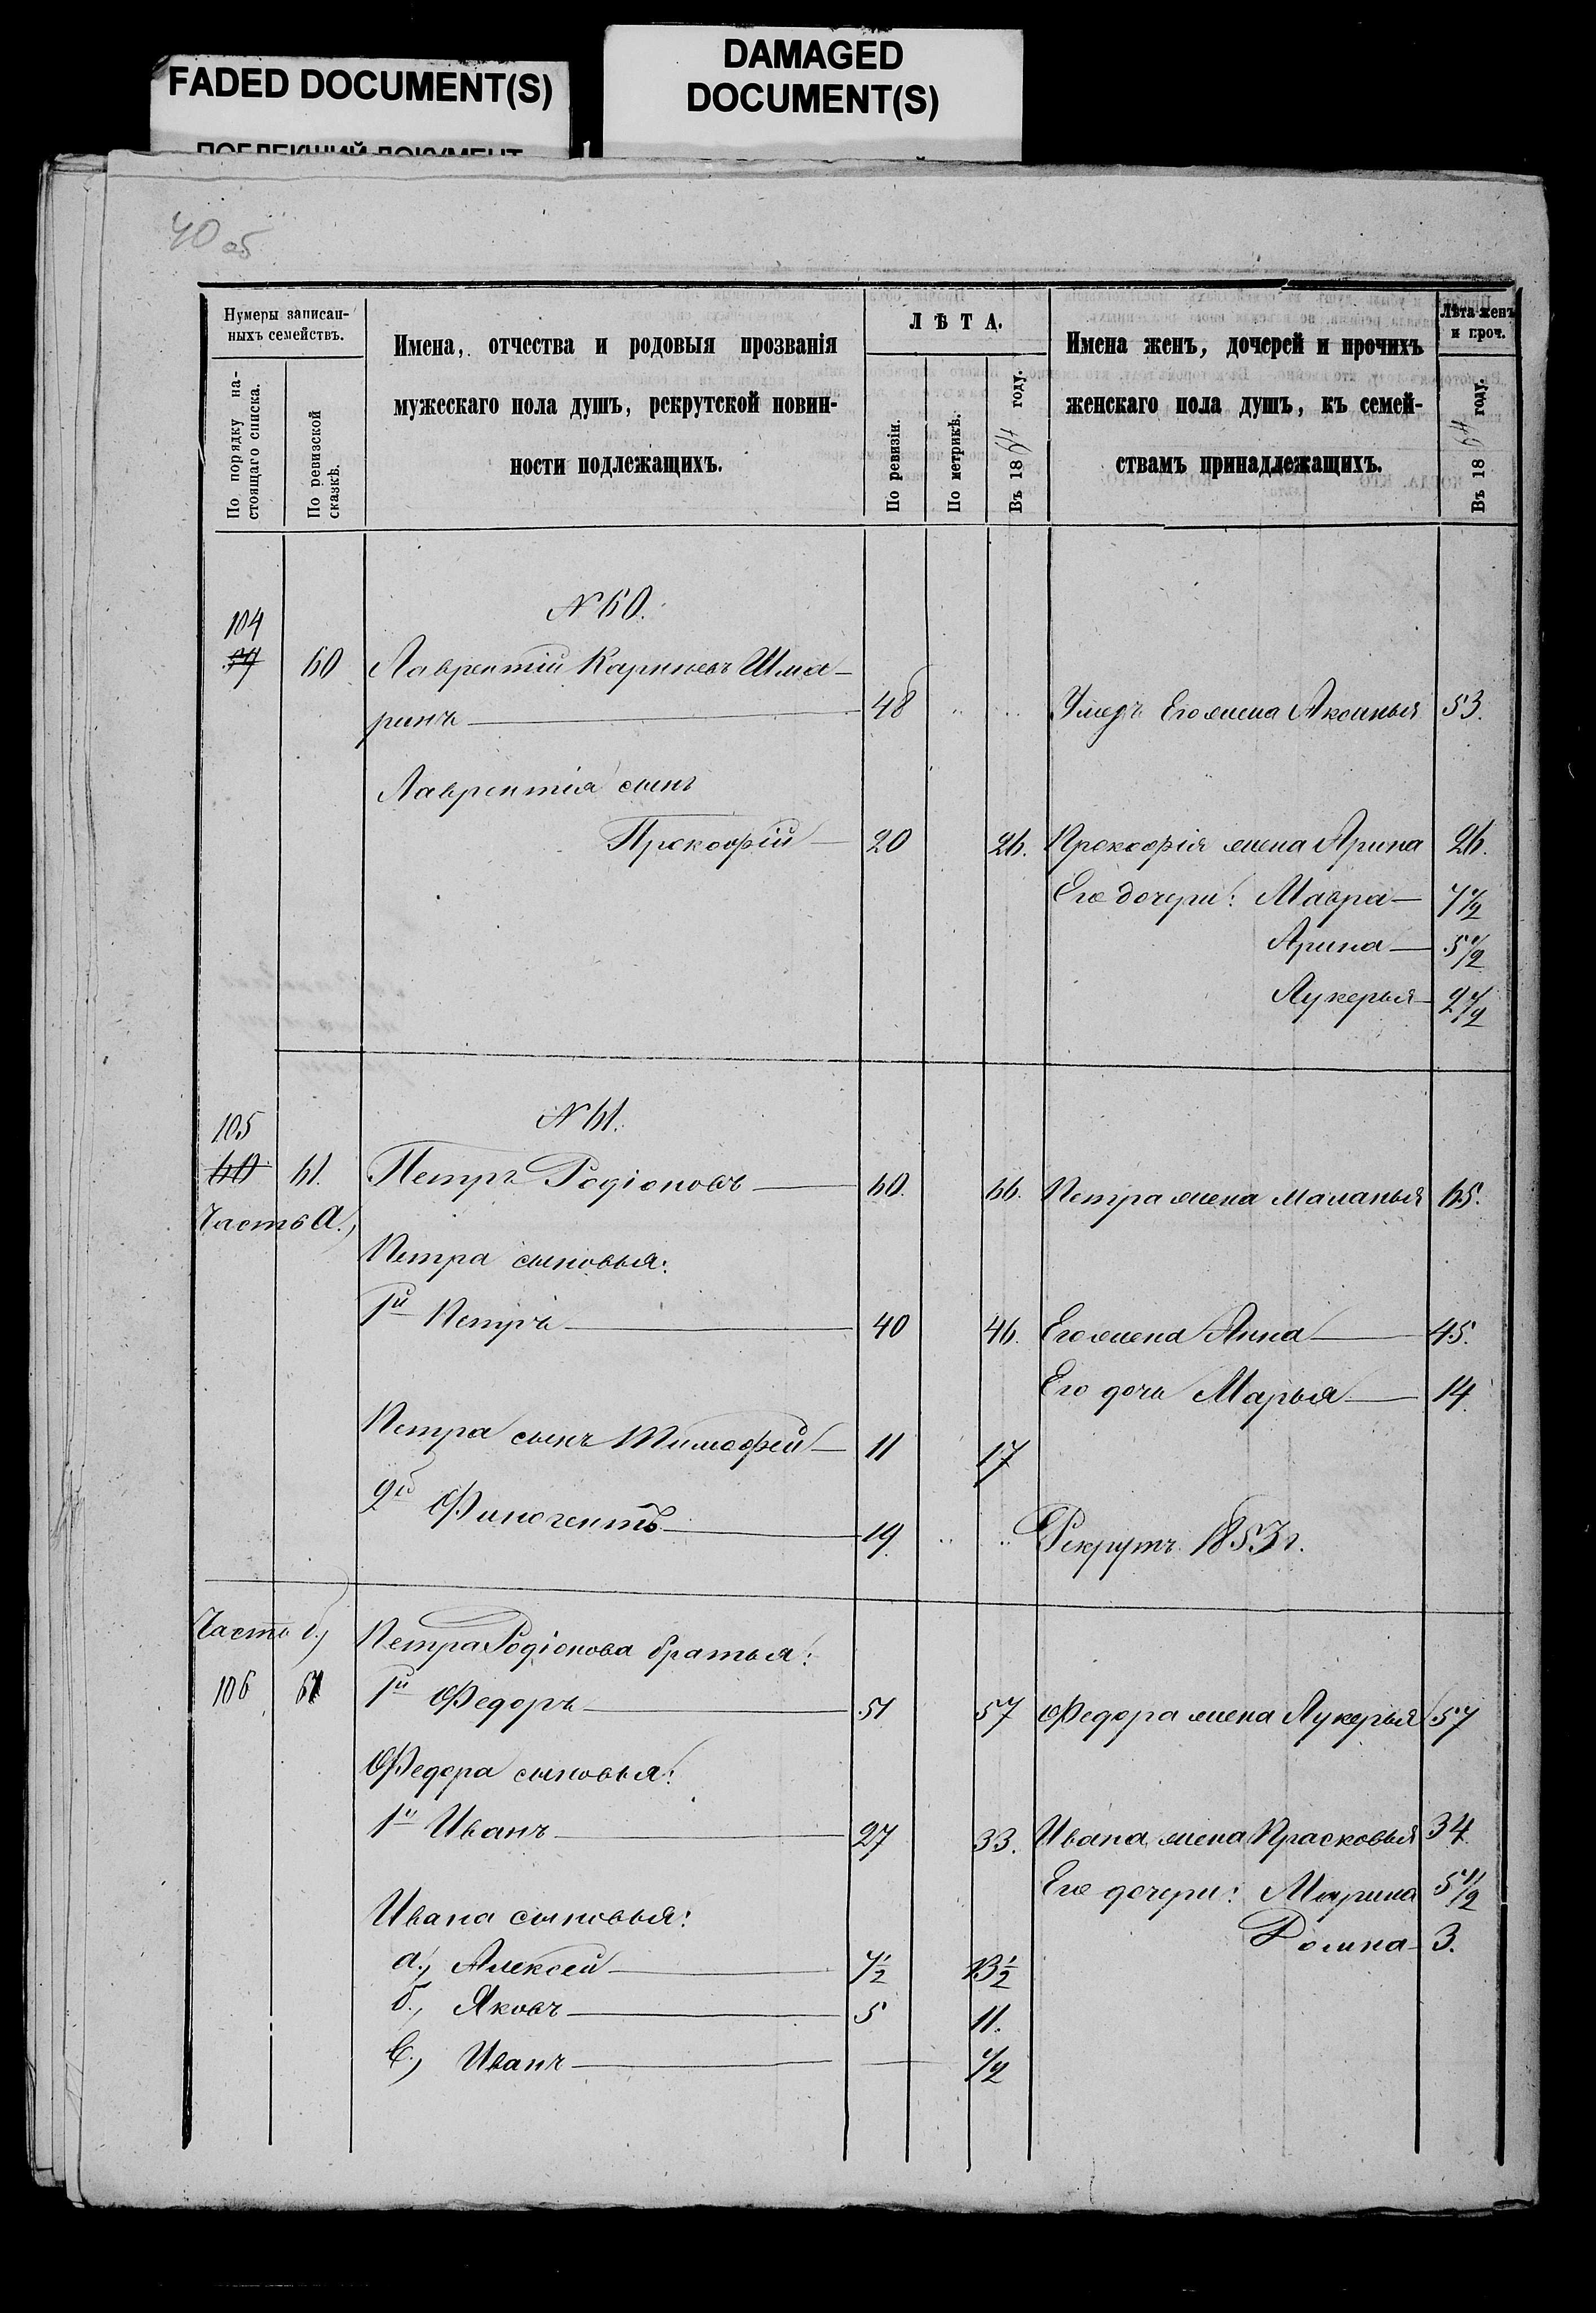 FADED DOCUMENT(S)
DAMAGED
DOCUMENT(S)
40 об
Нумеры записан-
ныхъ семействъ.
По порядку на-
стоящаго списка.
По ревизской
сказкѣ.
Имена, отчества и родовыя прозванія
мужескаго пола душъ, рекрутской повин-
ности подлежащихъ.
ЛѢТА.
По ревизіи.
По метрикѣ.
Въ 1864 году.
Имена женъ, дочерей и прочихъ
женскаго пола душъ, къ семей-
ствамъ принадлежащихъ.
Лѣта женъ
и проч.
Въ 1864 году.
№ 60.
104
59 60 Лаврентій Карпневъ Шма-
ринъ 48 Умеръ Его жена Аксинья 53.
Лаврентія сынъ
Прокофій 20 26. Прокофія жена Арина 26.
Его дочери: Мавра 7 1/2
Арина 5 1/2
Лукерья 2 1/2
105 № 61.
60 61. Петръ Родіоновъ 60. 66. Петра жена Маланья 65.
Часть а.,
Петра сыновья:
1й Петръ 40 46. Его жена Анна 45.
Его дочь Марья 14.
Петра сынъ Тимофей 11 17
2й Финогентъ 19. Рекрутъ 1853 г.
Часть б.,
Петра Родіонова братья:
106 61 1й Федоръ 51 57 Федора жена Лукерья 57
Федора сыновья:
1й Иванъ 27 33. Ивана жена Прасковья 34
Его дочери: Марина 5 1/2
Ивана сыновья:
Домна 3.
а., Алексей 7 1/2 13 1/2
б., Яковъ 5 11.
в., Иванъ 1/2